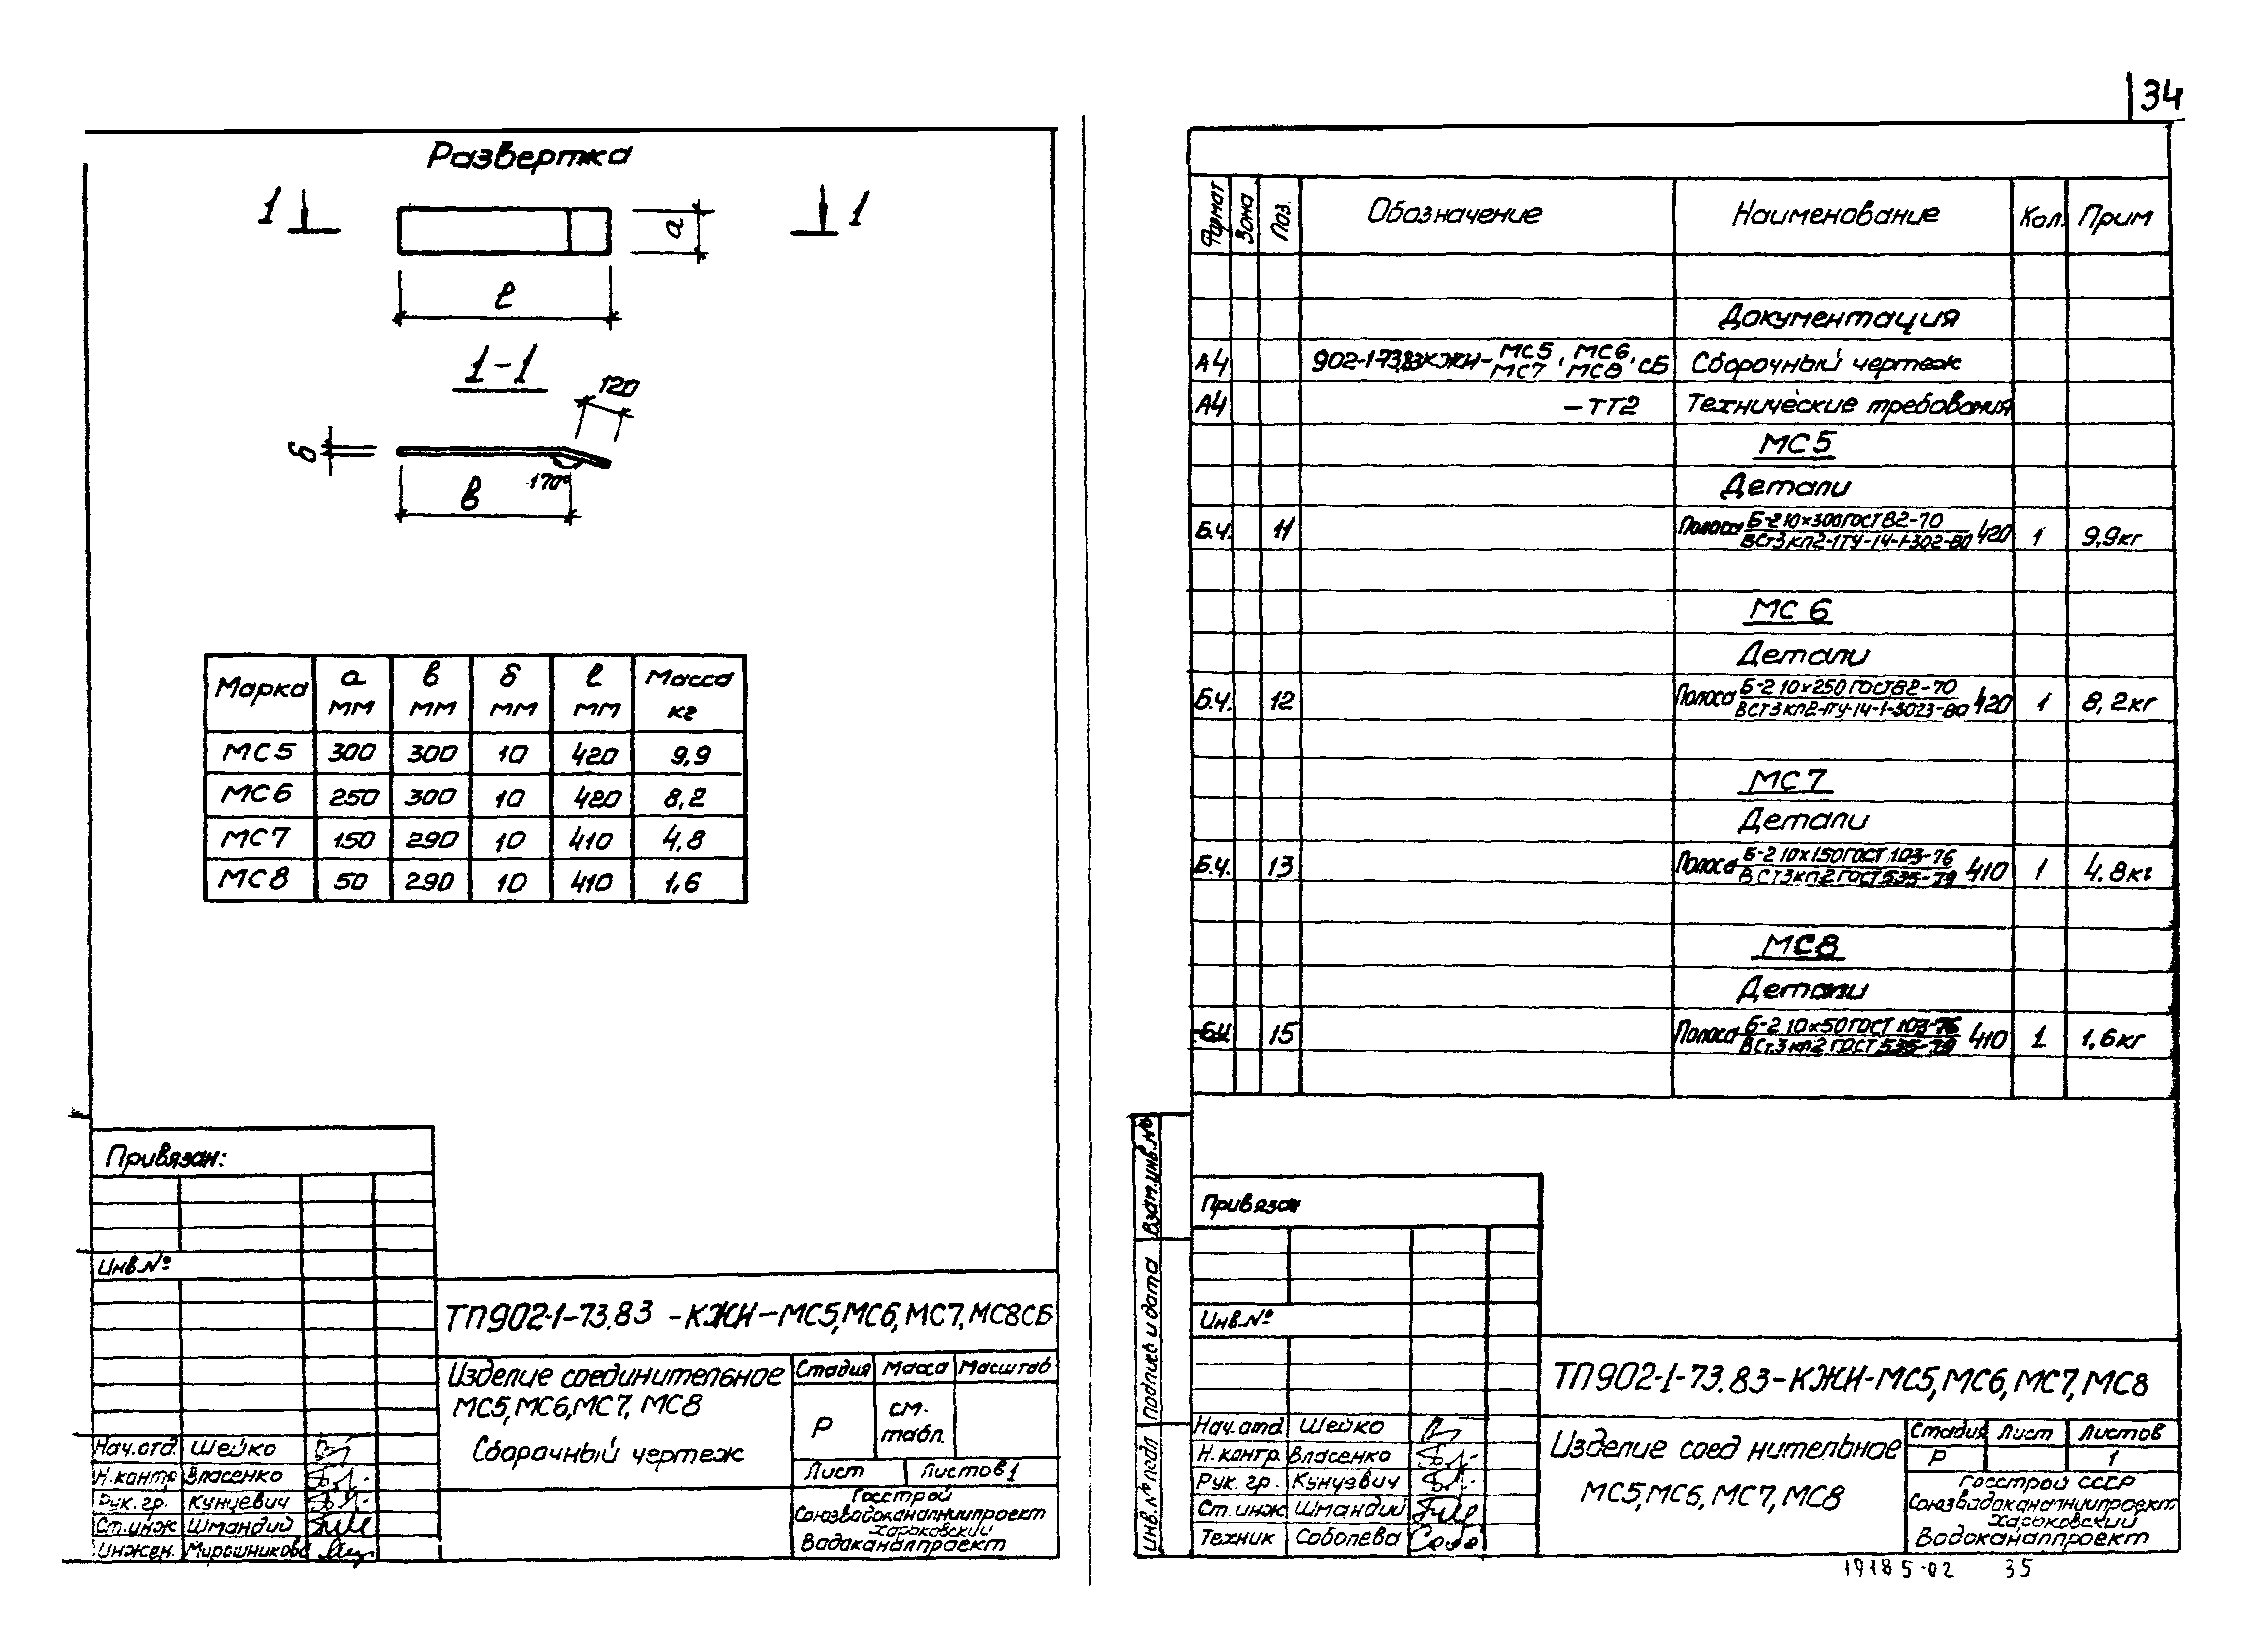 34
Развертка
1 1
а
ℓ
1-1
120
δ
170°
в
Марка а мм в мм δ мм ℓ мм Масса кг
МС5 300 300 10 420 9,9
МС6 250 300 10 420 8,2
МС7 150 290 10 410 4,8
МС8 50 290 10 410 1,6
Привязан:
Инв.№
ТП902-1-73.83 -КЖИ-МС5,МС6,МС7,МС8СБ
Изделие соединительное
МС5,МС6,МС7, МС8
Сборочный чертеж
Стадия Масса Масштаб
Р см. табл.
Лист Листов1
Госстрой
Союзводоканалниипроект
Харьковский
Водоканалпроект
Нач.отд. Шейко
Н.контр Власенко
Рук.гр. Кунцевич
Ст.инж Шмандий
Инжен. Мирошникова
Формат Зона Поз. Обозначение Наименование Кол. Прим
Документация
А4 902-1-73.83КЖИ-МС5, МС6, МС7, МС8, СБ Сборочный чертеж
А4 -ТТ2 Технические требования
МС5
Детали
Б.ч. 11 Полоса Б-2 10×300 ГОСТ 82-70 420 1 9,9кг
ВСт3кп2-1ТУ-14-1-302-80
МС 6
Детали
Б.ч. 12 Полоса Б-2 10×250 ГОСТ 82-70 420 1 8,2кг
ВСт3кп2-1ТУ-14-1-3023-80
МС 7
Детали
Б.ч. 13 Полоса Б-2 10×150 ГОСТ 103-76 410 1 4,8кг
ВСт3кп2 ГОСТ 535-79
МС8
Детали
Б.ч 15 Полоса Б-2 10×50 ГОСТ 103-76 410 1 1,6кг
ВСт.3кп2 ГОСТ 535-79
Взам.инв.№
Подпись и дата
Инв.№ подл
Привязан
Инв.№
ТП902-1-73.83-КЖИ-МС5,МС6,МС7,МС8
Изделие соед нительное
МС5,МС6,МС7,МС8
Стадия Лист Листов
Р 1
Госстрой СССР
Союзводоканалниипроект
Харьковский
Водоканалпроект
Нач.отд Шейко
Н.контр. Власенко
Рук. гр. Кунцевич
Ст.инж Шмандий
Техник Соболева
19185-02 35